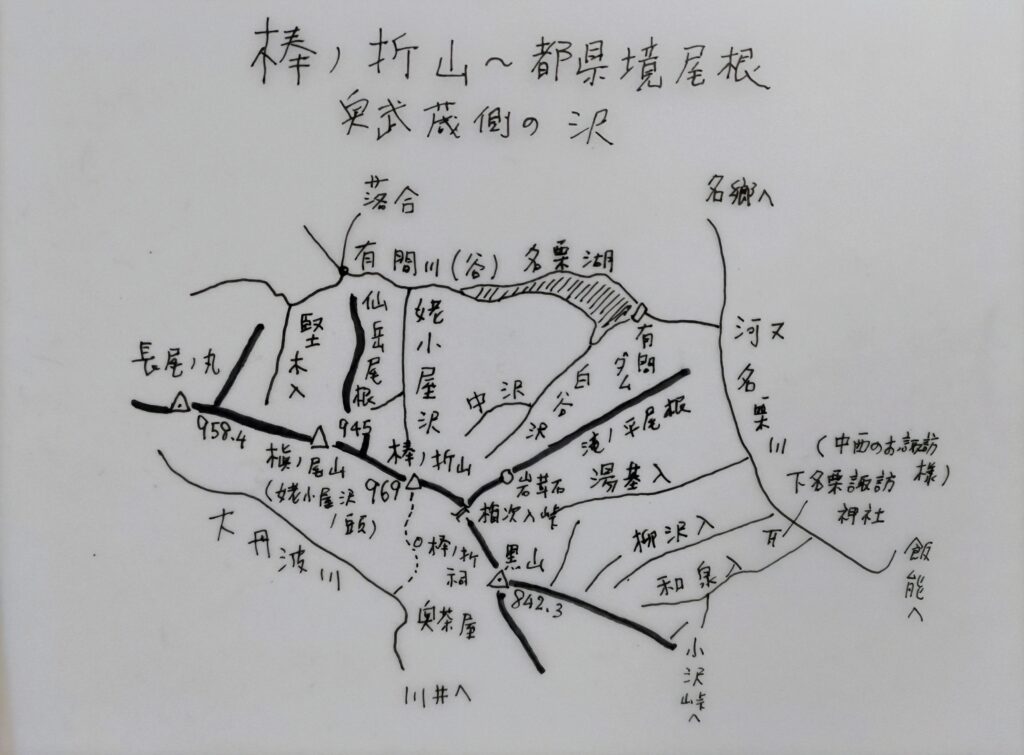 棒ノ折山〜都県境尾根
奥武蔵側の沢
落合
名郷へ
有間川(谷)
名栗湖
仙岳尾根
姥小屋沢
堅木入
有間ダム
河又
名栗川
長尾ノ丸
958.4
945
中沢
白谷沢
滝ノ平尾根
槇ノ尾山
(姥小屋沢ノ頭)
棒ノ折山
969
岩茸石
湯基入
(中西のお諏訪様)
下名栗諏訪神社
大丹波川
棒ノ折祠
黒山
842.3
柳沢入
和泉入
飯能へ
奥茶屋
川井へ
小沢峠へ